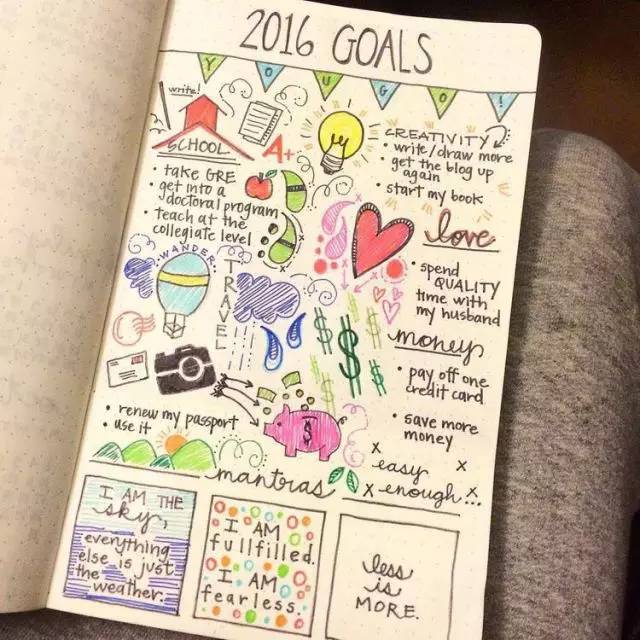 2016 GOALS
YOU GO!
write!
SCHOOL
A+
• take GRE
• get into a
doctoral program
• teach at the
collegiate level
CREATIVITY
• write/draw more
• get the blog up
again
• start my book
love
• spend
QUALITY
time with
my husband
WANDER
TRAVEL
• renew my passport
• use it
money
• pay off one
credit card
• save more
money
x easy x
x enough...
mantras
I AM THE
sky,
everything
else is just
the weather.
I AM
fullfilled.
I AM
fearless.
less
is
MORE.